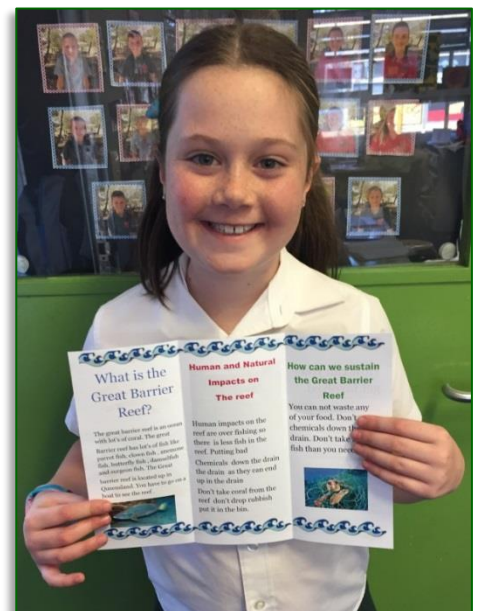 What is the
Great Barrier
Reef?
The great barrier reef is an ocean
with lot's of coral. The great
Barrier reef has lot's of fish like
parrot fish, clown fish, anemone
fish, butterfly fish, damselfish
and surgeon fish. The Great
barrier reef is located up in
Queensland. You have to go on a
boat to see the reef.
Human and Natural
Impacts on
The reef
Human impacts on the
reef are over fishing so
there is less fish in the
reef. Putting bad
Chemicals down the drain
the drain as they can end
up in the drain
Don't take coral from the
reef don't drop rubbish
put it in the bin.
How can we sustain
the Great Barrier
Reef
You can not waste any
of your food. Don't
chemicals down
drain. Don't take
fish than you need